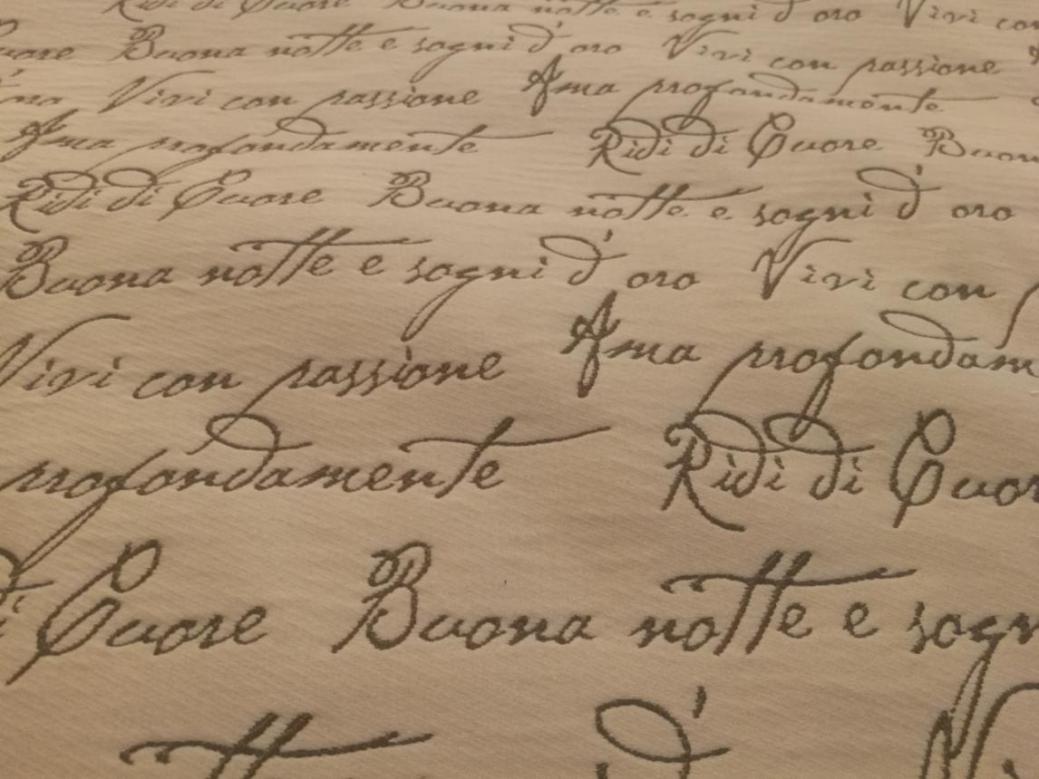 Ridi di Cuore Buona notte e sogni d'oro Vivi con
Cuore Buona notte e sogni d'oro Vivi con passione
Vivi con passione Ama profondamente
Ama profondamente Ridi di Cuore Buona
Ridi di Cuore Buona notte e sogni d'oro
Buona notte e sogni d'oro Vivi con
Vivi con passione Ama profondam
profondamente Ridi di Cuor
di Cuore Buona notte e sogn